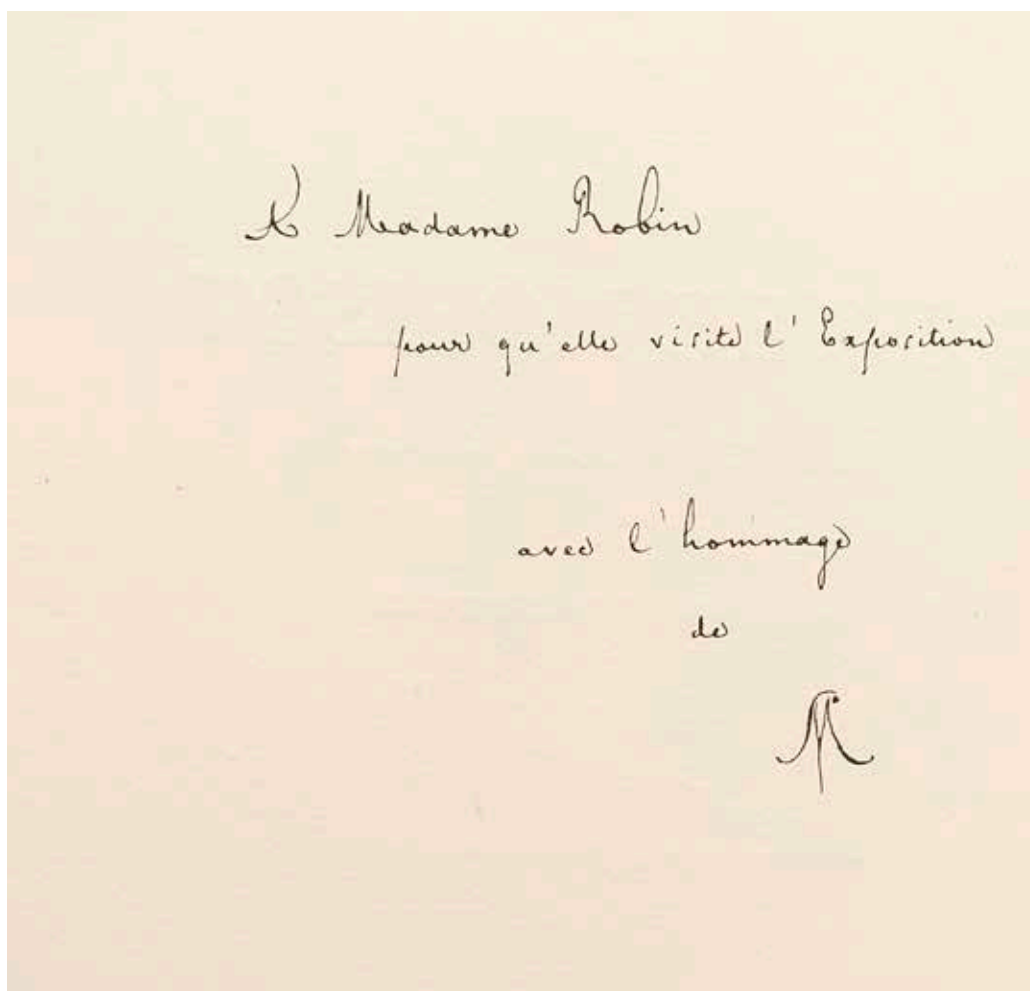 A Madame Robin
pour qu'elle visite l'Exposition
avec l'hommage
de